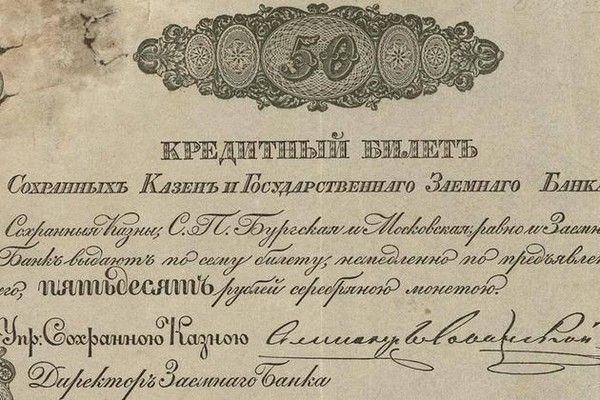 50
КРЕДИТНЫЙ БИЛЕТЪ
СОХРАННЫХЪ КАЗЕНЪ И ГОСУДАРСТВЕННАГО ЗАЕМНАГО БАНКА
Сохранныя Казны, С. П. Бургская и Московская, равно и Заемн
Банкъ выдаютъ по сему билету, немедленно по предъявлен
его, пятьдесятъ рублей серебряною монетою.
Упр: Сохранною Казною
Директоръ Заемнаго Банка